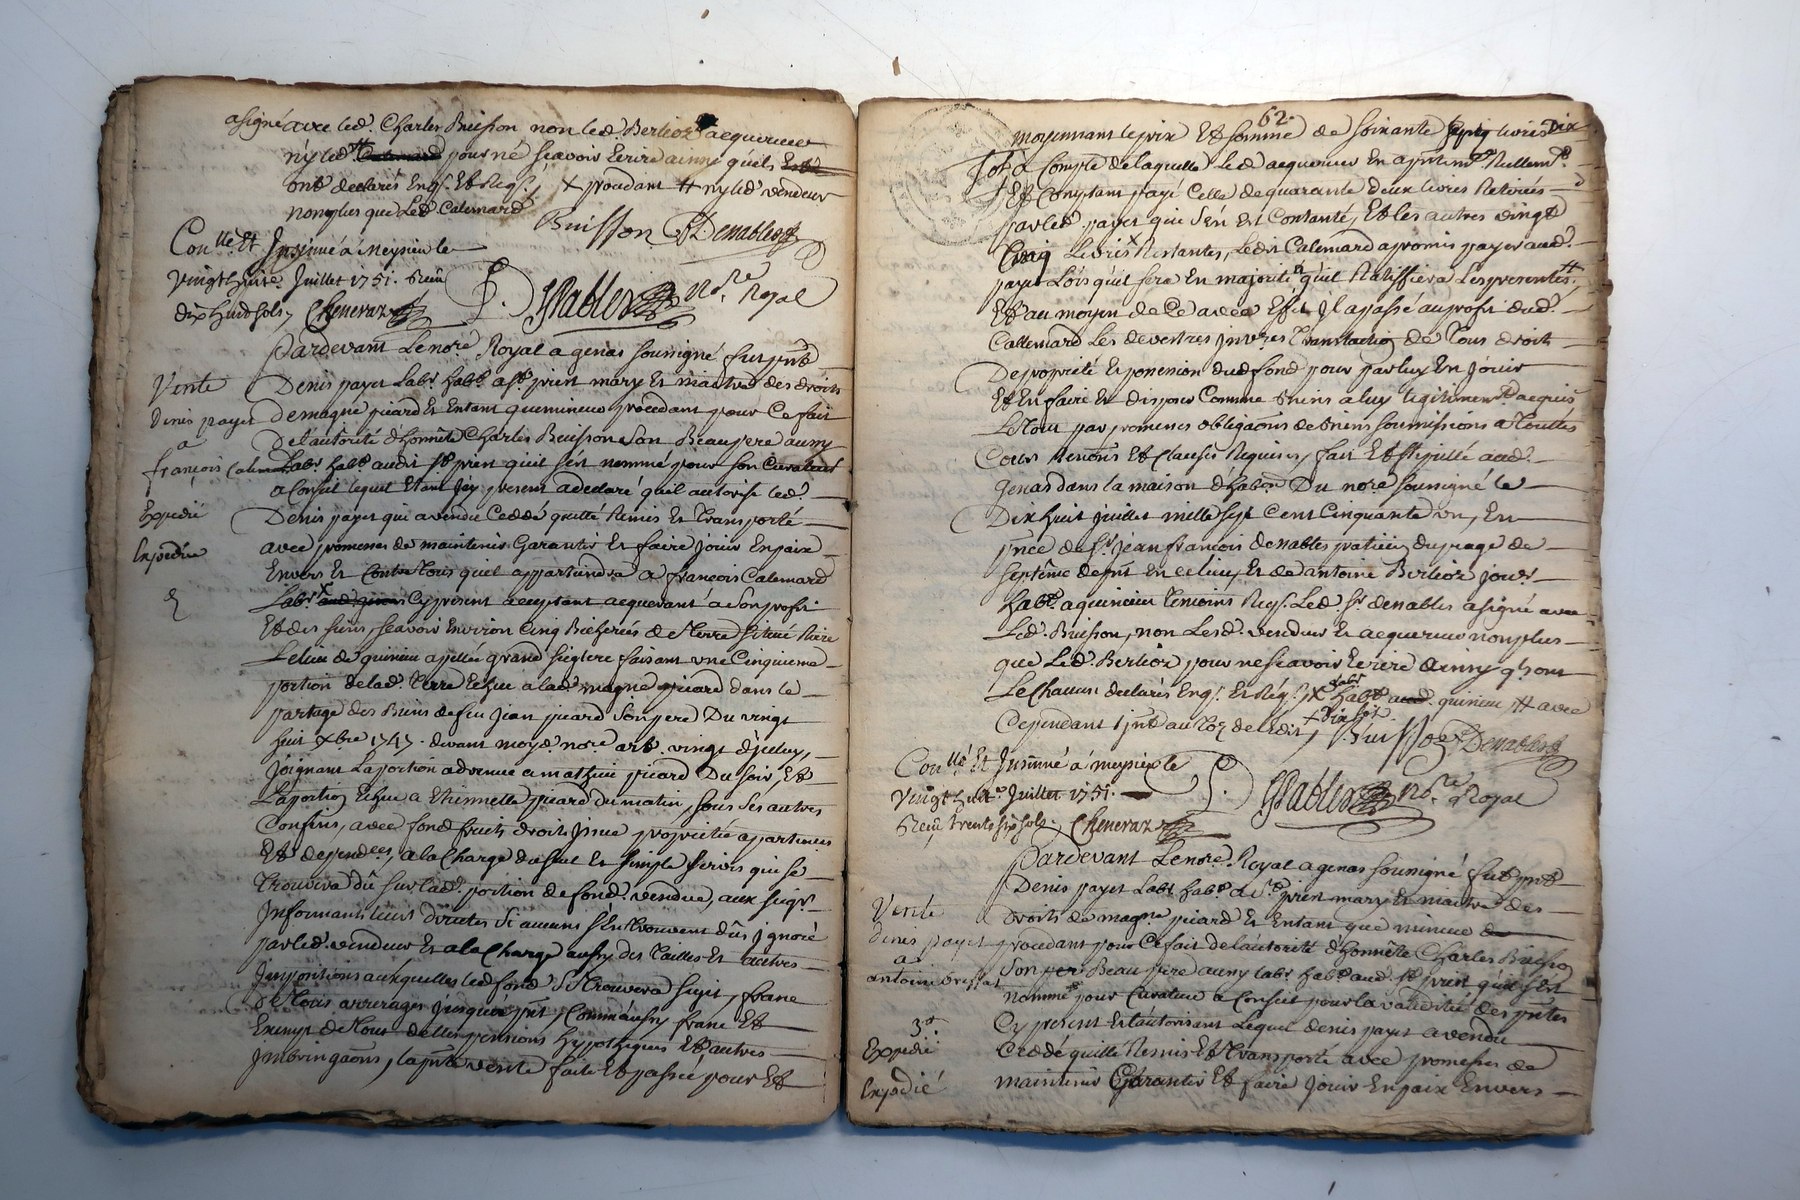 asigné avec led. Charles Buisson non led. Berlioz acquereur
ny led. pour ne sçavoir Ecrire ainsy quils
ont declarés Enq. Et Req. x procedant # ny led vendeur
non plus que Led. Calemard
Buisson Denables
Conllé Et Insinué a Meysieu le
Vingt huit Juillet 1751. Reçu
dix huid sols, Cheneraz
Denables Nore Royal
Pardevant Le nore Royal a genas soussigné fut pnt
Vente
Denis payet Labr habt a St priest mary Et maitre des droits
Denis payet
de magne picard Et Entant que mineur procedant pour Ce fait
a
De l'autorité d'honnête Charles Buisson Son Beaupere aussy
françois Calemard
Labr habt audit St priest quil s'est nommé pour Son Curateur
a Conseil lequel Etant Icy present a declaré quil autorise led.
Expedié
Denis payet qui a vendu Ceddé quitté Remis Et Transporté
Expediée
avec promesse de maintenir Garantir Et faire Jouir En paix
Envers Et Contre Tous quil appartiendra a françois Calemard
Labr Cy present acceptant acquerant a Son profit
Et des siens, sçavoir Environ Cinq Bicherées de Terre Située Riere
Le lieu de quinieu apellée grand Sieglere faisant une Cinquieme
portion de lad. Terre Echue a lad. magne picard dans le
partage des Biens de feu Jean picard Son pere Du vingt
huit xbre 1747. devant moyd. nore art. vingt d'jceluy,
Joignant La portion advenue a mathieu picard Du soir, Et
La portion Echue a Etiennette picard du matin, sous Ses autres
Confins, avec fond fruits droits Jssue proprieté appartinces
Et dependces, a la Charge du seul Et Simple servis qui se
Trouvera dû sur lad. portion de fond vendue, aux seigrs
Informants leurs directes Si aucuns s'En Trouvent dûs Ignoré
par led. vendeur Et a la Charge aussy des Tailles Et autres
Impositions auxquelles led fond Se Trouvera sujet, franc
de Tous arrerages jusqu'a pnt, Comm'aussy franc Et
Exempt de Tous dettes pensions hypotheques Et autres
Imbringaons, la pnte vente faite Et passée pour Et
62.
moyennant le prix Et somme de soixante livres Dix
a Compte de laquelle led acquereur En a pntemt Rellemt
Et Comptant payé Celle de quarante deux livres Retirées
par led. payet qui S'en Est Contanté, Et les autres vingt
Cinq Livres x Restantes, Ledit Calemard a promis payer aud.
payet Lors qu'il sera En majorité Et qu'il Ratiffiera Les presentes #
Et au moyen de Ce avec Effet Il a passé au profit dud.
Callemard Les devestres Invres Translation de Tous droits
De proprieté Et possession dud fond pour par luy En Jouir
Et En faire Et disposer Comme Biens a luy legitimemt acquis
Le Tout par promesses obligaons de Biens soumissions a Touttes
Cours Renons Et Clauses Requises, fait Et stipullé aud.
Genas dans la maison d'habaon Du nore soussigné le
Dix huit Juillet mille sept Cent Cinquante un, En
pnce de Sr Jean françois denables praticien
septême de pnt En Ce lieu, Et de antoine Berlioz Jour
habt a quinieu Temoins Req. Led. Sr denables a signé avec
Led. Buisson, non Lesd. vendeur Et acquereur non plus
que Led. Berlioz pour ne sçavoir Ecrire ainsy qu'ont
Le Chacun declarés Enq. Et Req. x Labr habt aud. quinieu # avec
Cependant x Dix sols
Buisson Denables
Conllé Et Insinué a meysieu le
Vingt huit Juillet 1751.
Reçu trente six sols, Cheneraz
Denables Nore Royal
Pardevant Le nore Royal a genas soussigné fut pnt
Denis payet Labr habt a St priest mary Et maitre des
Vente
droits de magne picard Et Entant que mineur
Denis payet
procedant pour Ce fait de l'autorité d'honnête Charles Buisson
a
Son Beau pere aussy labr habt aud St priest qu'il s'Est
antoine
nommé pour Curateur a Conseil pour la validité des pntes
Cy present Et l'autorisant Lequel denis payet a vendu
3.
Expedié
Ceddé quitté Remis Et Transporté avec promesses de
Expedié
maintenir Garantir Et faire Jouir En paix Envers